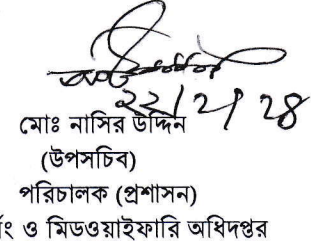 ২২/২/২৪
মোঃ নাসির উদ্দিন
(উপসচিব)
পরিচালক (প্রশাসন)
ও মিডওয়াইফারি অধিদপ্তর